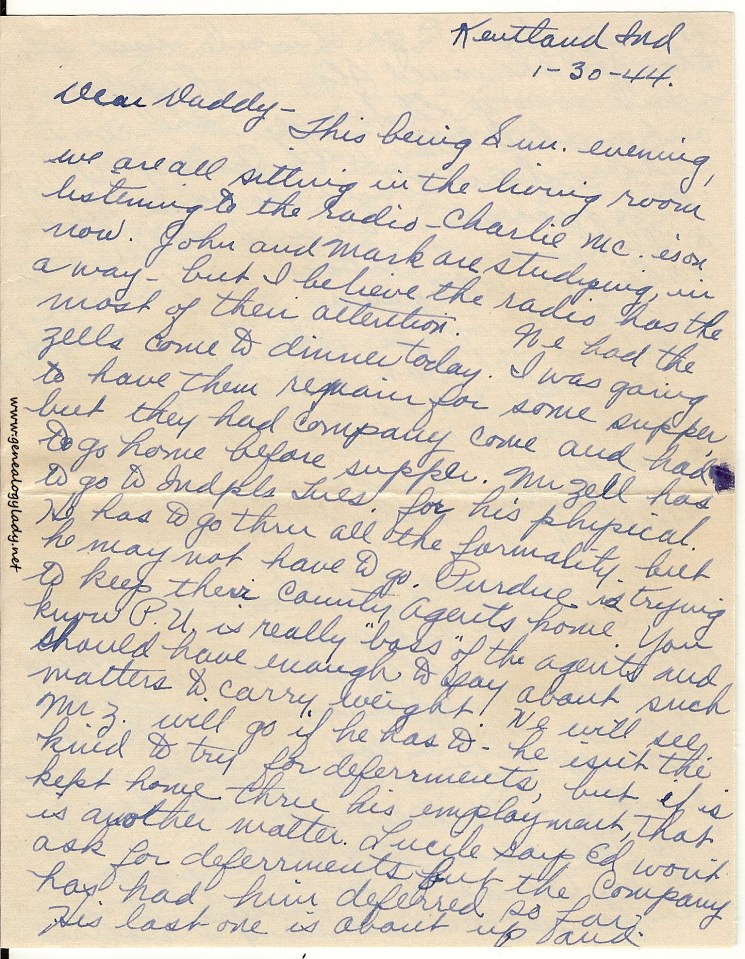 Kentland Ind
1-30-44.
Dear Daddy-
This being Sun. evening,
we are all sitting in the living room
listening to the radio - Charlie Mc. is on
now. John and Mark are studying, in
a way - but I believe the radio has the
most of their attention. We had the
Zells come to dinner today. I was going
to have them remain for some supper
but they had company come and had
to go home before supper. Mr Zell has
to go to Indpls Tues. for his physical.
He has to go thru all the formality but
he may not have to go. Purdue is trying
to keep their County Agents home. You
know P.U. is really "boss" of the agents and
should have enough to say about such
matters to carry weight. We will see.
Mr Z. will go if he has to - he isn't the
kind to try for deferrments, but if is
kept home thru his employment, that
is another matter. Lucile says Ed won't
ask for deferrments but the Company
has had him deferred so far.
His last one is about up and
www.genealogylady.net